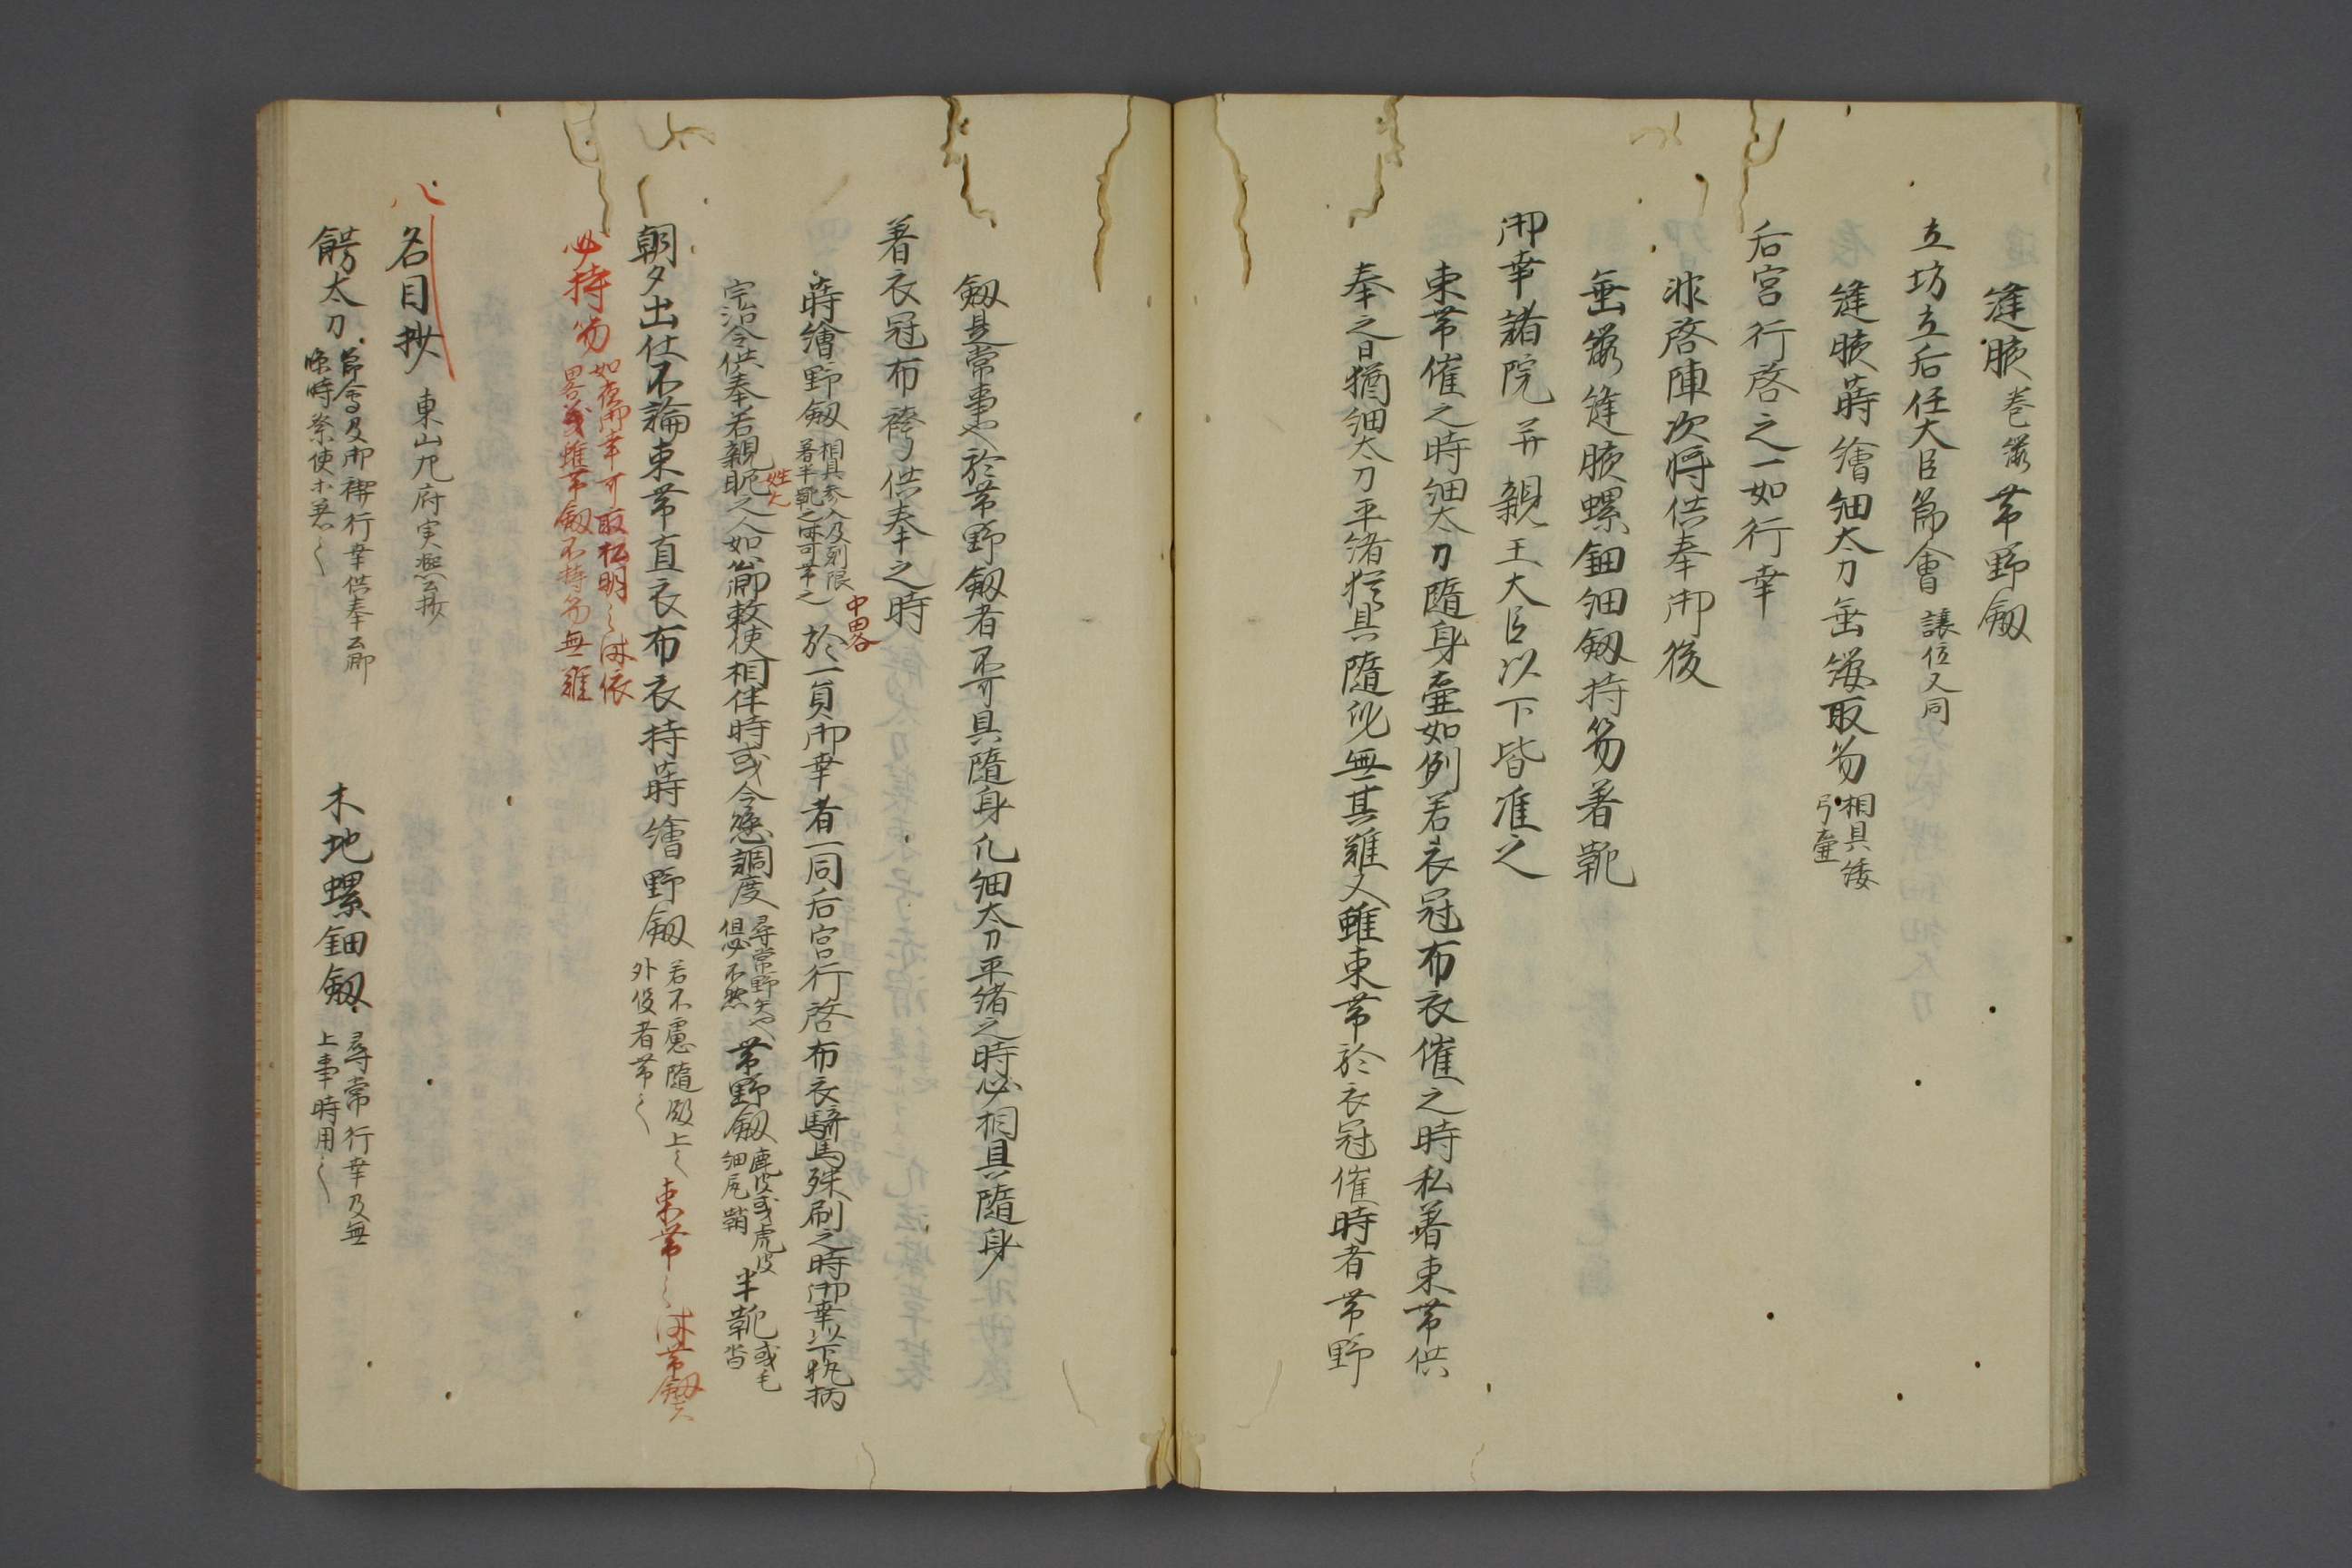 縫腋巻纓帯野釼
立坊立后任大臣節會 譲位又同
縫腋蒔繪細太刀垂纓取笏 相具矮
弓壷
后宮行啓之一如行幸
非啓陣次将供奉御後
垂纓縫腋螺鈿細釼持笏着靴
御幸諸院并親王大臣以下皆准之
束帯催之時細太刀隨身壷如例若衣冠布衣催之時私着束帯供
奉之日猶細太刀平緒猶具隨身無其難又雖束帯於衣冠催時者帯野
釼是常事也於帯野釼者不可具隨身凡細太刀平緒之時必相具隨身
着衣冠布袴了供奉之時
蒔繪野釼 相具参入及剋限
着半靴之時可帯之
中畧
於一員御幸者一同后宮行啓布衣騎馬殊刷之時御幸以下執柄
宇治令供奉若親昵之人如節敕使相伴時或令懸調度 尋常野矢也
但必不然
帯野釼 鹿皮或虎皮
細尻鞘
半靴 或毛
沓
朝夕出仕不論束帯直衣布衣持蒔繪野釼 若不慮隨殿上之
外役者帯之
束帯之時帯釼
必持笏 如夜御幸可取松明之時依
畧義雖帯釼不持笏無難
名目抄 東山左府実凞公抄
餝太刀 節會及御禊行幸供奉公卿
臨時祭使等着之
木地螺鈿釼 尋常行幸及無
上事時用之